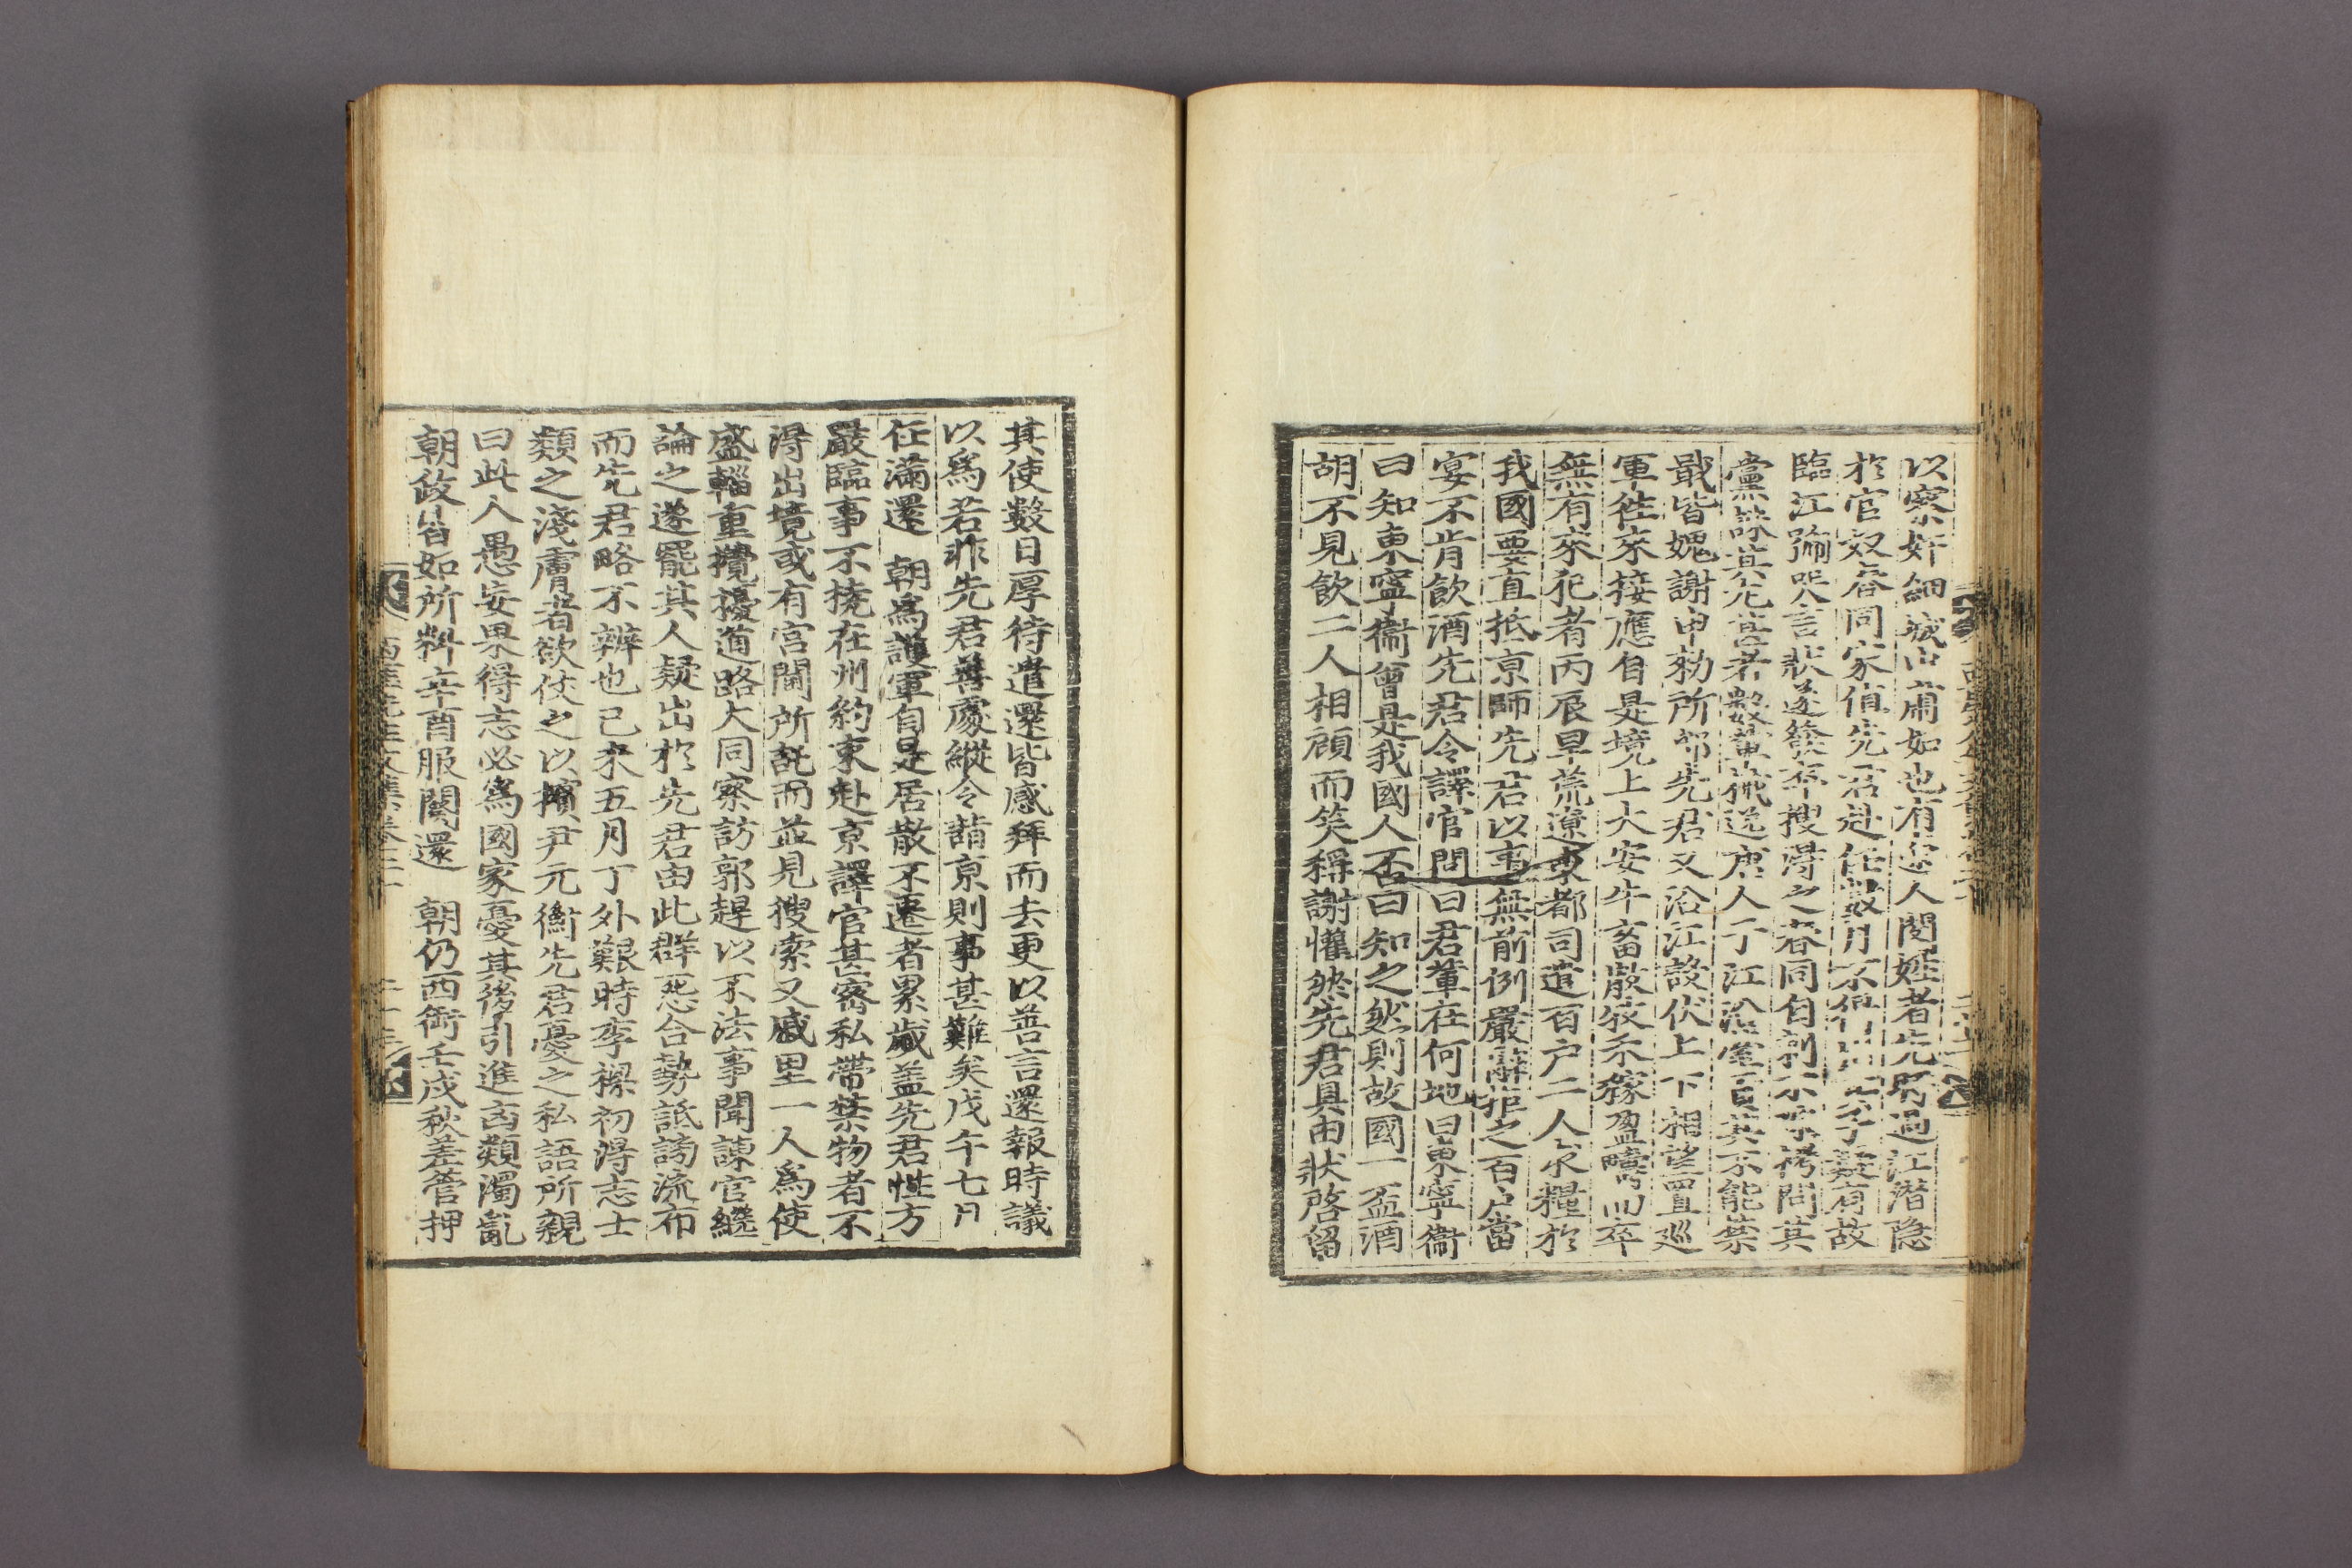 以察奸細城中肅如也有唐人閔姓者先時過江潜隐
於官奴春同家值先君赴任數月不得出其子疑有故
臨江號哭言狀遂發卒搜得之春同自剄不無栲問其
黨除其尤甚者數輩械送唐人于江沿堡責其不能禁
戢皆媿謝申勑所部先君又沿江設伏上下相望置廵
軍徃來接應自是境上大安牛畜散牧禾稼盈疇而卒
無有來犯者丙辰旱荒遼東都司遣百户二人求糧於
我國要直抵京師先君以事無前例嚴辭拒之百户當
宴不肯飮酒先君令譯官問曰君軰在何地曰東寧衞
曰知東寧衞曾是我國人否曰知之然則故國一盃酒
胡不見飮二人相顧而笑稱謝懽然先君具由狀啓留
其使數日厚待遣還皆感拜而去更以善言還報時議
以爲若非先君善處縱令詣京則事甚難矣戊午七月
任滿還 朝爲護軍自是居散不遷者累歲盖先君性方
嚴臨事不撓在州約束赴京譯官甚密私帶禁物者不
得出境或有宫闈所託而並見搜索又戚里一人爲使
盛輜重攪擾道路大同察訪郭趕以不法事聞諫官繼
論之遂罷其人疑出於先君由此群惡合勢詆謗流布
而先君略不辨也己未五月丁外艱時李樑初得志士
類之淺膚者欲仗之以擯尹元衡先君憂之私語所親
曰此人愚妄果得志必爲國家憂其後引進凶類濁亂
朝政皆如所料辛酉服闋還 朝仍西衝壬戌秋差管押
西厓先生文集卷二十